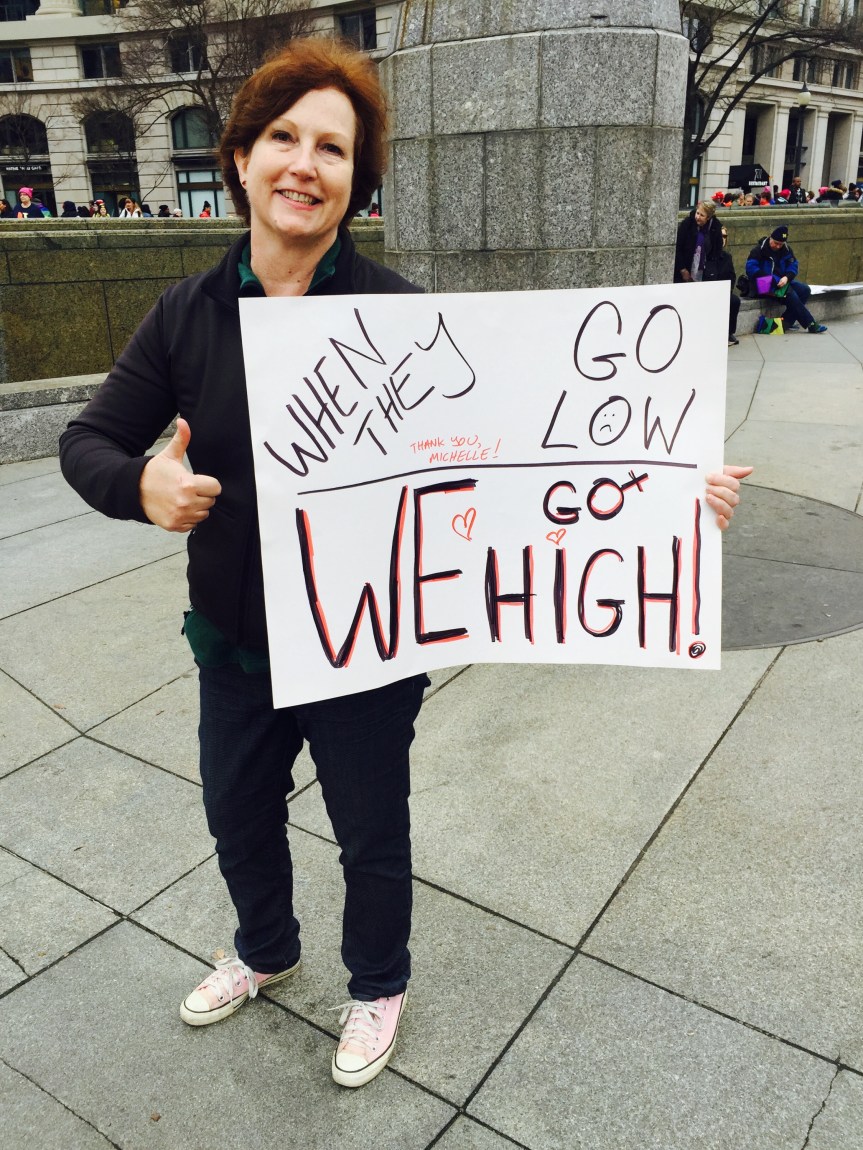 WHEN
THEY
GO
LOW
THANK YOU,
MICHELLE!
WE GO
HiGH!